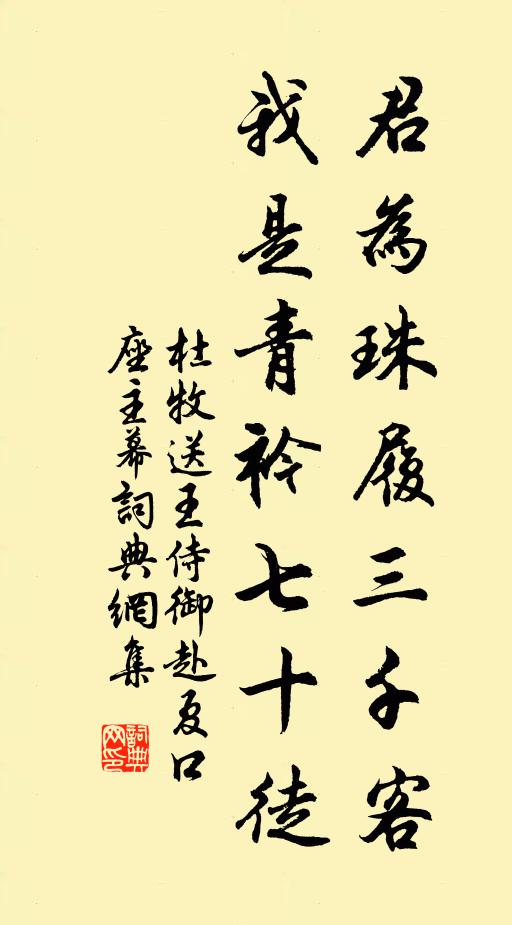 君為珠履三千客
我是青衿七十徒
杜牧送王侍御赴夏口
座主幕詞典網集
詞典
网印